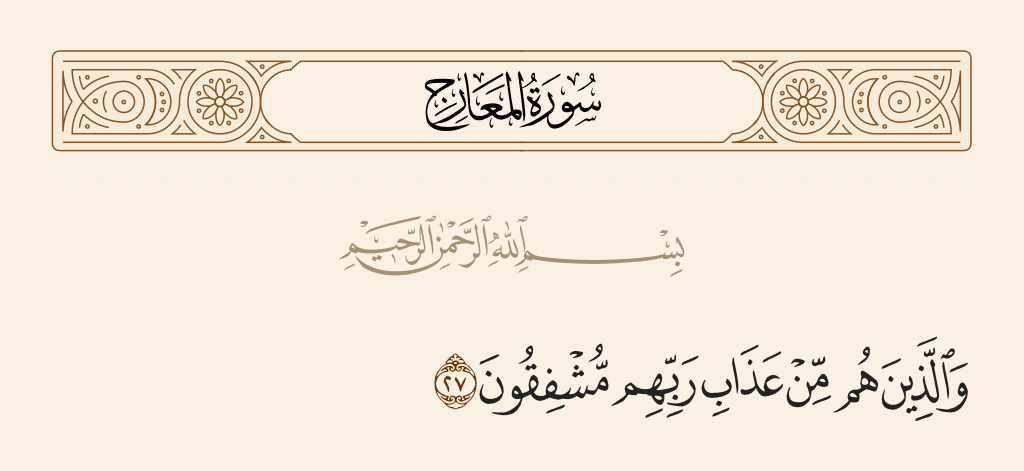 سُورَةُ المَعَارِج
بِسْمِ ٱللَّهِ ٱلرَّحْمَٰنِ ٱلرَّحِيمِ
وَٱلَّذِينَ هُم مِّنْ عَذَابِ رَبِّهِم مُّشْفِقُونَ ٢٧